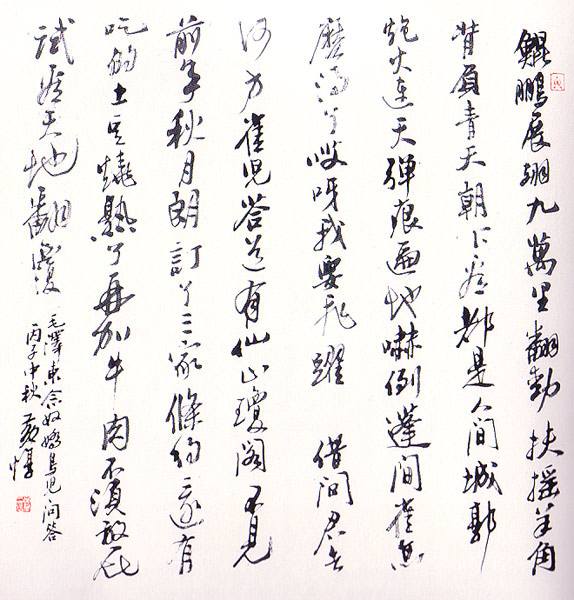 鯤鵬展翅九萬里翻動扶搖羊角
背負青天朝下看都是人間城郭
炮火連天彈痕遍地嚇倒蓬間雀怎
麼得了哎呀我要飛躍 借問君去
何方雀兒答道有仙山瓊閣不見
前年秋月朗訂了三家條約還有
吃的土豆燒熟了再加牛肉不須放屁
試看天地翻覆
毛澤東念奴嬌鳥兒問答
丙子中秋